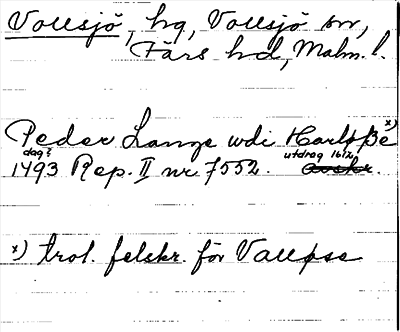 Vollsjö, hg, Vollsjö sn,
Färs hd, Malm. l.
Peder Lange wdi Harløßė x)
dag? utdrag 1612
1493 Rep. II nr 7552. Avskr.
x) trol. felskr. för Valløse